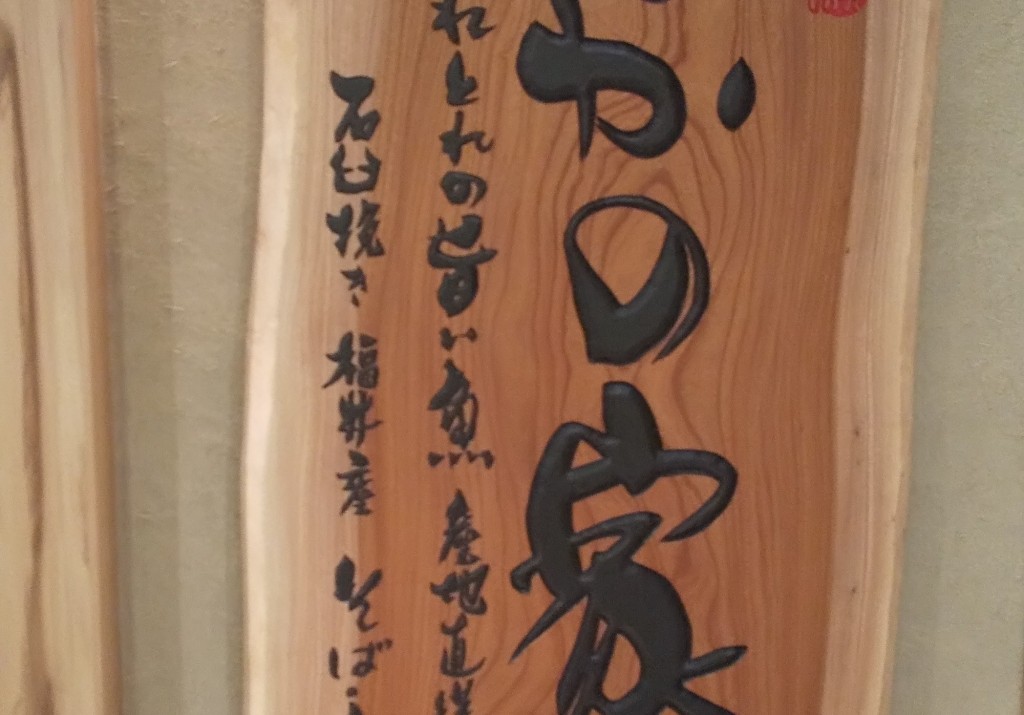 かの家
れとれの旨い魚 産地直送
石臼挽き 福井産 そば